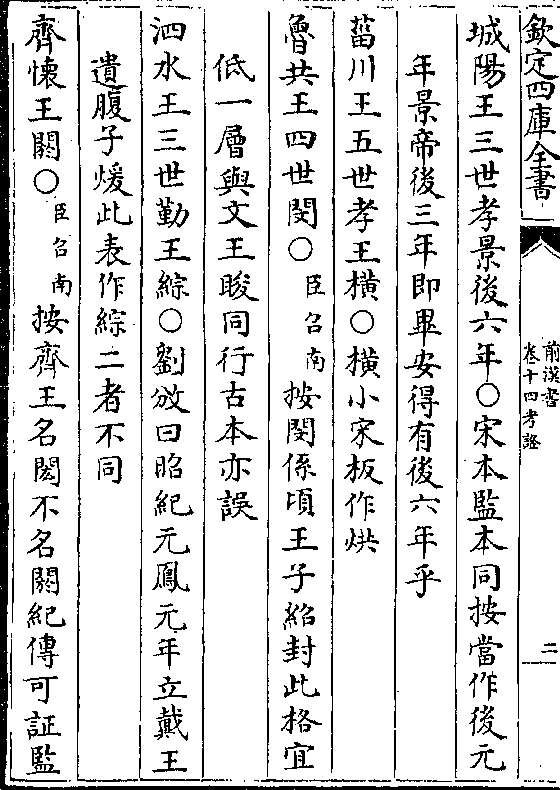 欽定四庫全書
前漢書
卷十四考證
二
城陽王三世孝景後六年○宋本監本同按當作後元
年景帝後三年即畢安得有後六年乎
菑川王五世孝王橫○橫小宋板作烘
魯共王四世閔○臣召南按閔係頃王子紹封此格宜
低一層與文王睃同行古本亦誤
泗水王三世勤王綜○劉攽曰昭紀元鳳元年立戴王
遺腹子煖此表作綜二者不同
齊懷王閼○臣召南按齊王名閎不名閼紀傳可証監